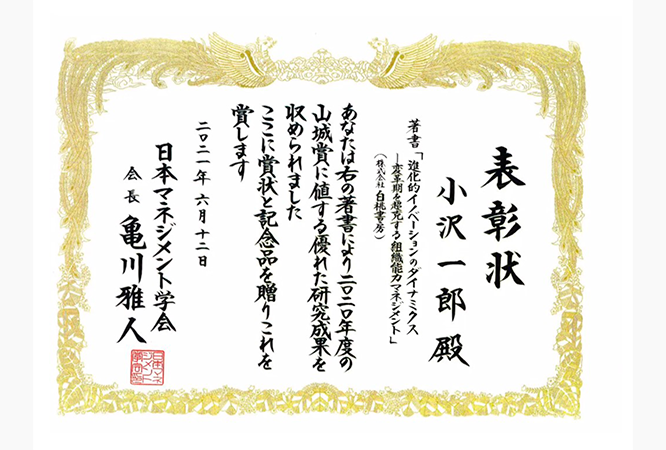 表彰状
小沢一郎 殿
著書「進化的イノベーションのダイナミクス
―変革期を超克する組織能力マネジメント」
(株式会社 白桃書房)
あなたは右の著書により二〇二〇年度の
山城賞に値する優れた研究成果を
収められました
ここに賞状と記念品を贈りこれを
賞します
二〇二一年六月十二日
日本マネジメント学会
会長 亀川雅人